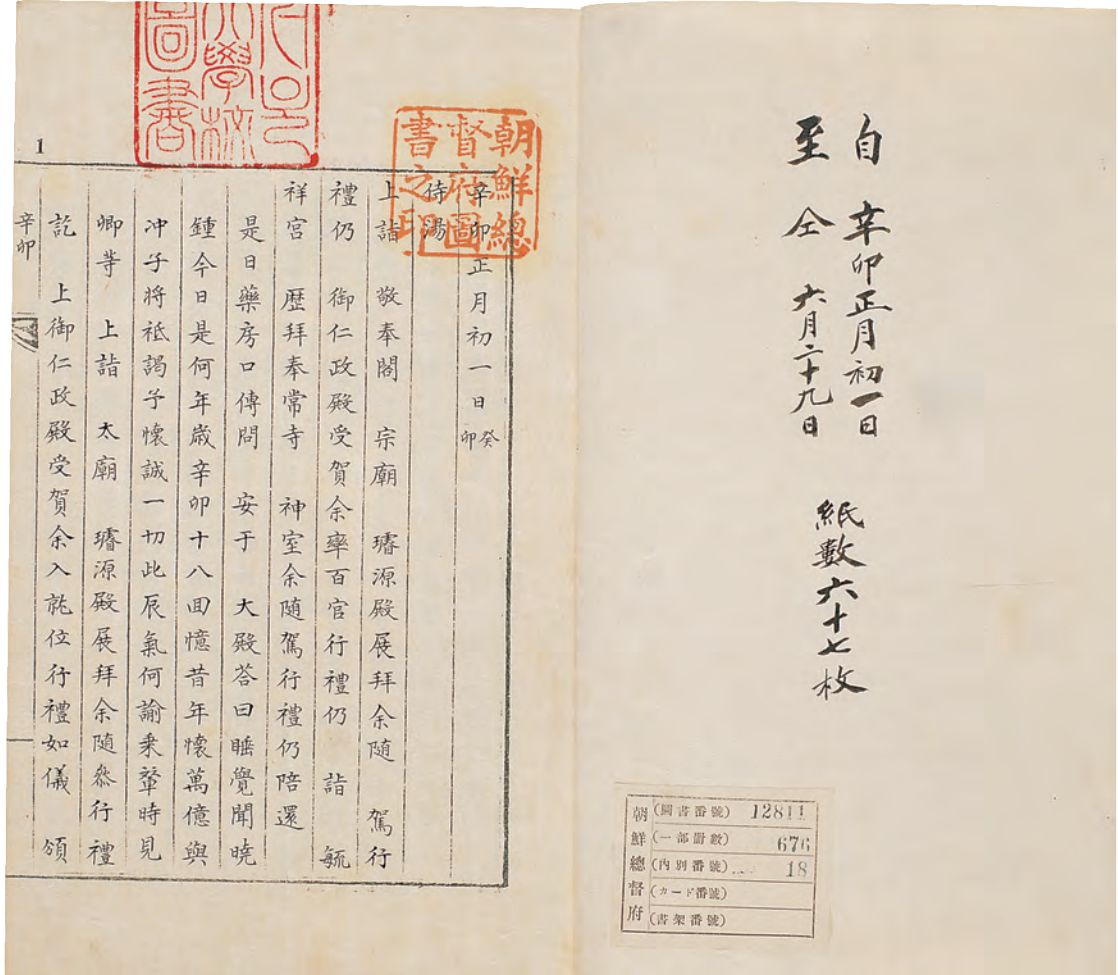 自 辛卯正月初一日
至 仝 六月二十九日
紙數六十七枚
朝鮮總督府
(圖書番號) 12811
(一部冊數) 676
(內別番號) 18
(カード番號)
(書架番號)
朝鮮總
督府圖
書之印
大學校
圖書
1
辛卯正月初一日癸卯
侍湯
上詣 敬奉閣 宗廟 璿源殿展拜余隨 駕行
禮仍 御仁政殿受賀余率百官行禮仍 詣 毓
祥宮 歷拜奉常寺 神室余隨駕行禮仍陪還
是日藥房口傳問 安于 大殿答曰睡覺聞曉
鍾今日是何年歲辛卯十八回憶昔年懷萬億與
冲子將祗謁予懷誠一切此辰氣何諭乘輦時見
卿等 上詣 太廟 璿源殿展拜余隨參行禮
訖 上御仁政殿受賀余入就位行禮如儀 頒
辛卯